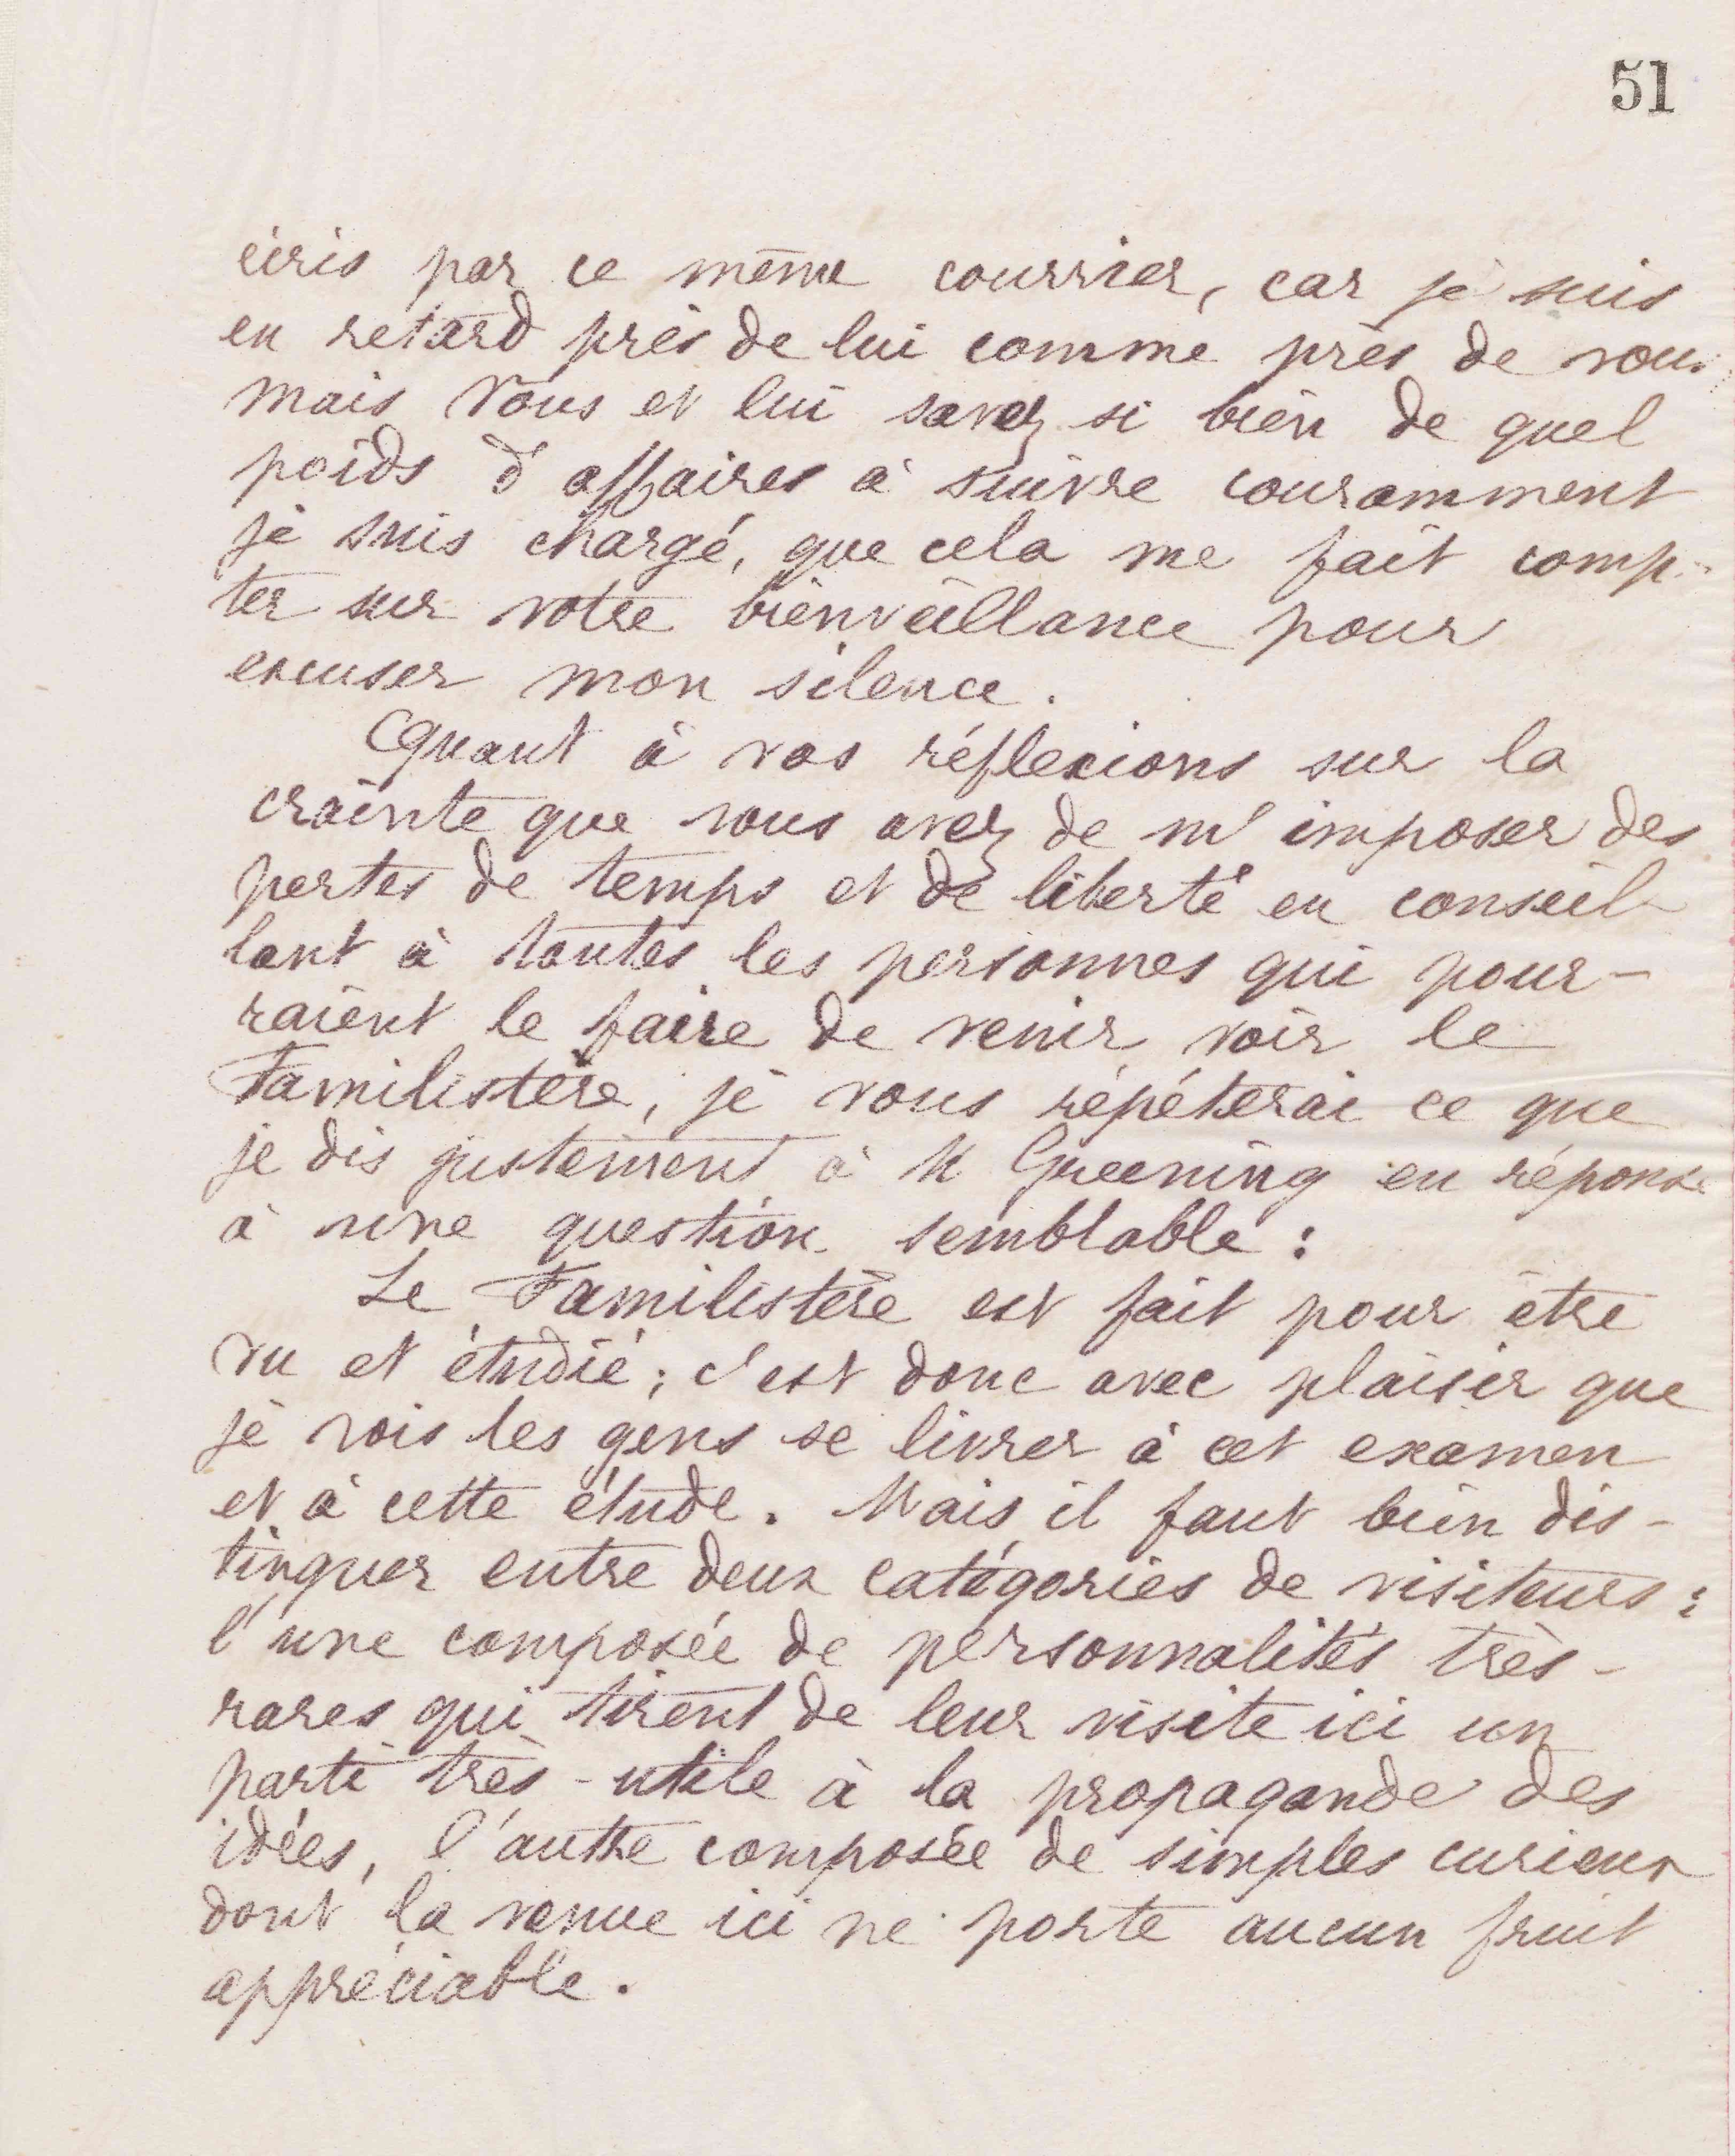 51
écris par ce même courrier, car je suis
en retard près de lui comme près de vous
mais vous et lui savez si bien de quel
poids d'affaires à suivre couramment
je suis chargé, que cela me fait comp-
ter sur votre bienveillance pour
excuser mon silence.
Quant à vos réflexions sur la
crainte que vous avez de m'imposer des
pertes de temps et de liberté en conseil-
lant à toutes les personnes qui pour-
raient le faire de venir voir le
Familistère, je vous répéterai ce que
je dis justement à M Greening en réponse
à une question semblable :
Le Familistère est fait pour être
vu et étudié ; c'est donc avec plaisir que
je vois les gens se livrer à cet examen
et à cette étude. Mais il faut bien dis-
tinguer entre deux catégories de visiteurs :
l'une composée de personnalités très-
rares qui tirent de leur visite ici un
parti très-utile à la propagande des
idées, l'autre composée de simples curieux
dont la venue ici ne porte aucun fruit
appréciable.